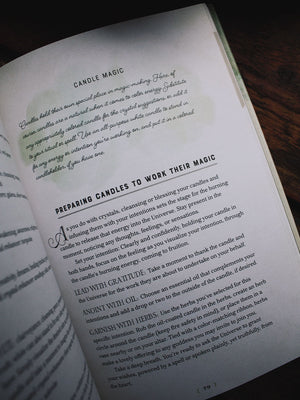 CANDLE MAGIC
Candles hold their own special place in magic-making. Here, of
course, candles are a natural when it comes to color energy. Substitute
any appropriately colored candle for the crystal suggestions or add it
to your ritual or spell. Use an all-purpose white candle to stand in
for any energy or intention you're working on, and put it in a colored
candleholder if you have one.
PREPARING CANDLES TO WORK THEIR MAGIC
As you do with crystals, cleansing or blessing your candles and
infusing them with your intentions sets the stage for the burning
candle to release that energy into the Universe. Stay present in the
moment, rejecting any thoughts, feelings, or sensations.
Set your intention. Clearly and confidently, holding your candle in
both hands, focus on the feeling as you visualize your intention, through
the candle's burning energy, coming to fruition.
LEAD WITH GRATITUDE. Take a moment to thank the candle and
the Universe for the work they are about to undertake on your behalf.
ANOINT WITH OIL. Choose an essential oil that complements your
intentions and add a drop or two to the outside of the candle, if desired
GARNISH WITH HERBS. Use the herbs you've selected for this
specific intention. Rub the oil-coated candle in the herbs, create an herb
circle around the candle (keep fire safety in mind), or place them in a
vase nearby or on your altar. Tied with a color-matching ribbon, herbs
make a lovely offering to any goddess you may invite to join you.
Take a deep breath. You're ready to ask the Universe to grant
your wishes, powered by a spell or spoken plainly, yet truthfully, from
the heart.